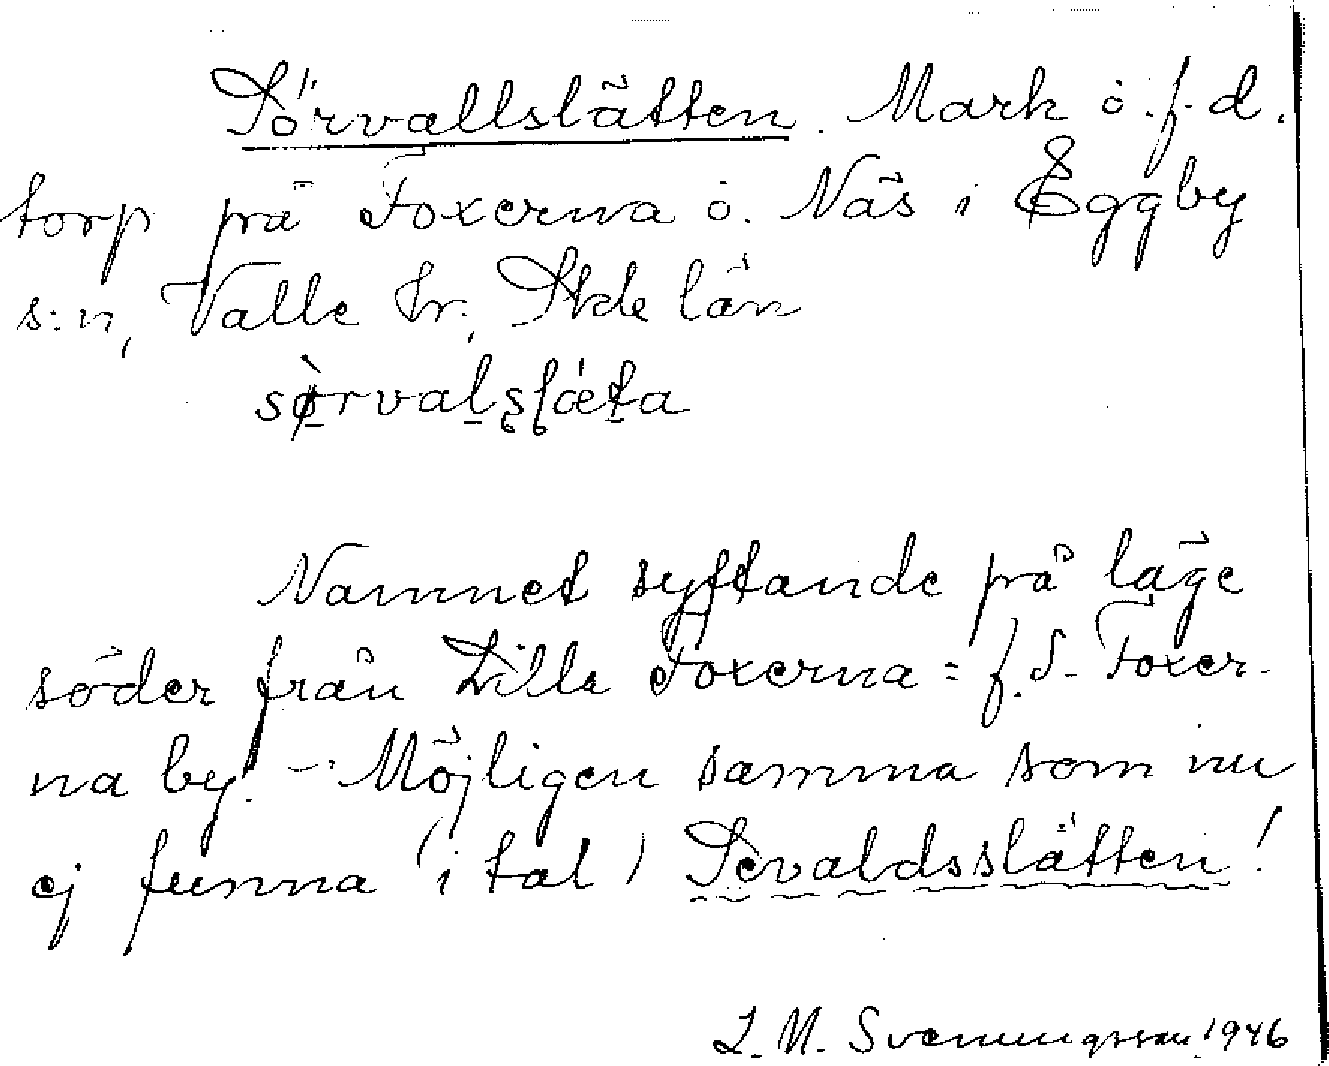 Sörvallslätten. Mark ö. f. d.
torp på Foxerna ö. Näs i Eggby
s:n, Valle hr, Skde län
sǿrvalsʃæta
Namnet syftande på läge
söder från Lilla Foxerna = f. d. Foxer-
na by. – Möjligen samma som nu
ej funna (i tal) Sevaldsslätten!
L. M. Svenungsson 1946